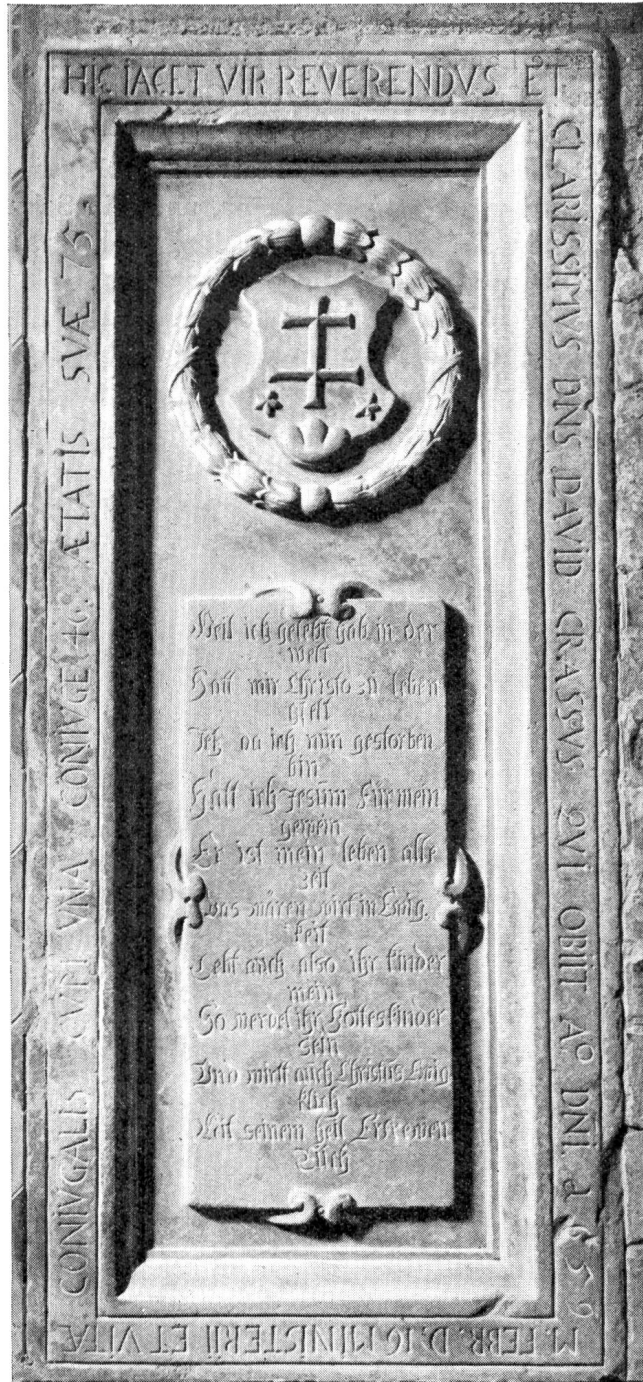 HIC IACET VIR REVERENDVS ET
CLARISSIMVS DNS DAVID CRASSVS QVI OBIIT Aº DNI 1659
M. FEBR. D. 16 MINISTERII ET VITÆ
CONIVGALIS CVM VNA CONIVGE 46. ÆTATIS SVÆ 75.
Weil ich gelebt hab in der
welt
Hatt mir Christo zu leben
gfelt
Jetz da ich nun gestorben
bin
Halt ich Jesum für mein
gewin
Er ist mein leben alle
zeit
Das wären wirt in Ewig
keit
Lebt auch also ihr kinder
mein
So werdet ihr Gottes kinder
sein
Und wirt auch Christus Ewig
klich
Mit seinem heil Erfrewen